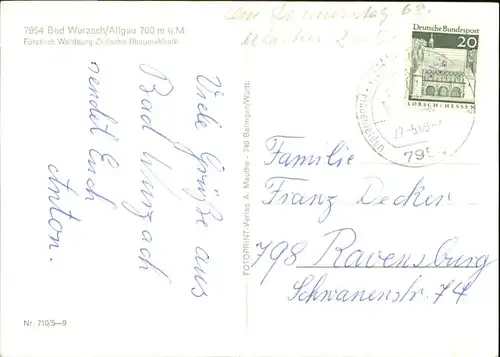 7954 Bad Wurzach/Allgäu 700 m ü.M.
Fürstlich Waldburg-Zeil'sche Rheumaklinik
Viele Grüße aus
Bad Wurzach
sendet Euch
Anton.
Nr. 710/5—9
FOTOPRINT-Verlag A. Mauthe - 746 Balingen/Württ.
Deutsche Bundespost
20
LORSCH/HESSEN
795
Familie
Franz Decker
798 Ravensburg
Schwanenstr. 74